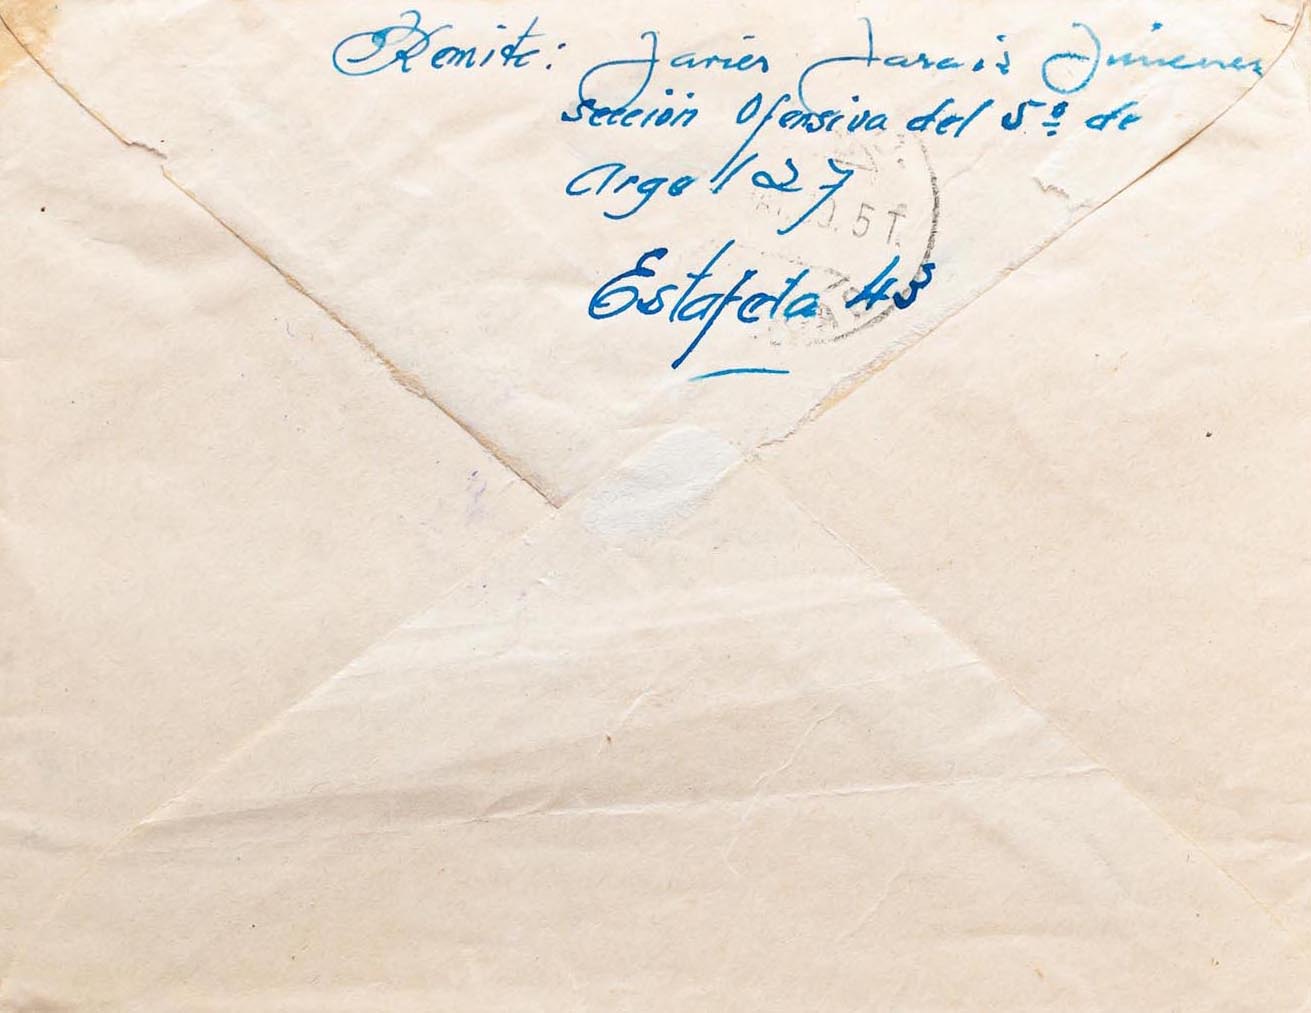 Remite: Javier Jarais Jimenez
Sección Ofensiva del 5º de
Argel 27
Estafeta 43